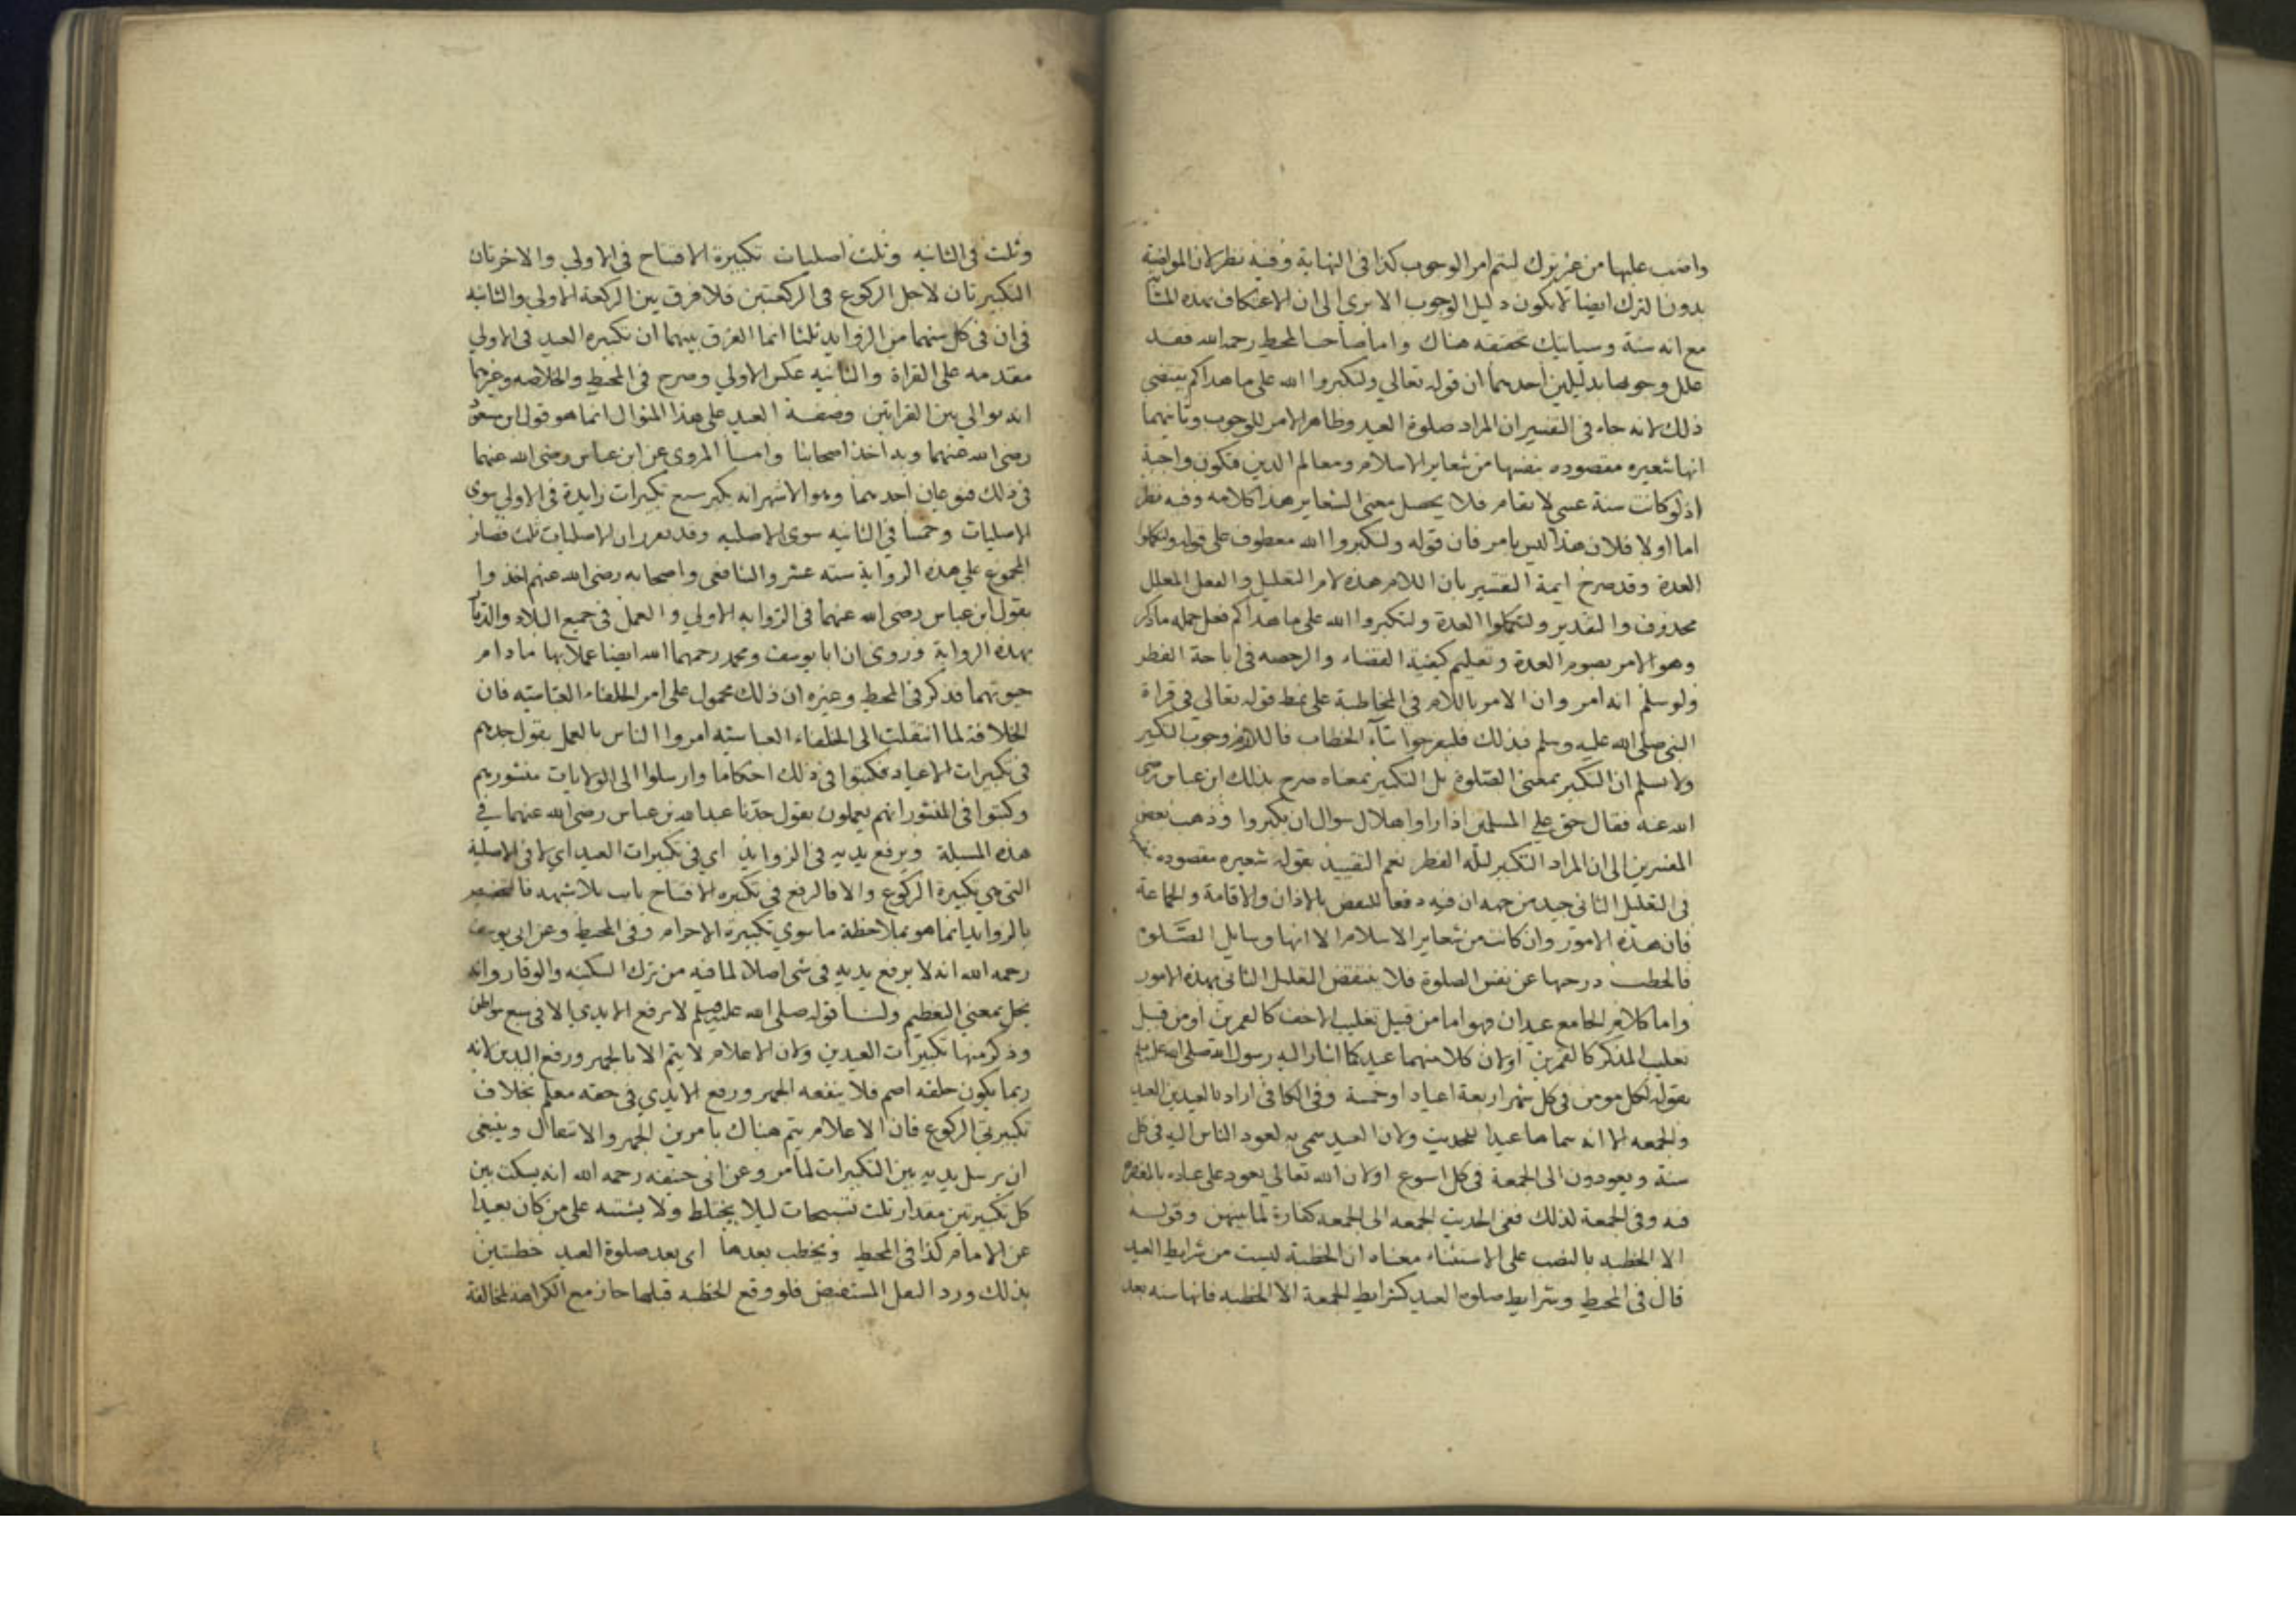 واضب عليها من غير ترك ليتم امر الوجوب كذا فى النهاية وفيه نظر لان المواضبة
بدون الترك ايضا لا يكون دليل الوجوب الا يرى الى ان الاعتكاف بهذه المثابة
مع انه سنة وسيأتيك تحقيقه هناك واما صاحب المحيط رحمه الله فقد
علل وجوبها بدليلين احدهما ان قوله تعالي ولتكبروا الله على ما هداكم يقتضى
ذلك لانه جاء فى التفسير ان المراد صلوة العيد وظاهر الامر للوجوب وثانيهما
انها شعيره مقصوده بنفسها من شعاير الاسلام ومعالم الدين فتكون واجبة
اذ لو كانت سنة عسى لا تقام فلا يحصل معنى الشعاير هذا كلامه وفيه نظر
اما اولا فلان هذا ليس بامر فان قوله ولتكبروا الله معطوف على قوله ولتكملوا
العدة وقد صرح ايمة التفسير بان اللام هذه لام التعليل والفعل المعلل
محذوف والتقدير ولتكملوا العدة ولتكبروا الله على ما هداكم فعل جمله ما ذكر
وهو الامر بصوم العدة وتعليم كيفية القضاء والرخصه فى اباحة الفطر
ولو سلم انه امر وان الامر باللام فى المخاطبة على نمط قوله تعالي فى قراة
النبى صلى الله عليه وسلم فبذلك فلتفرحوا بتاء الخطاب فاللازم وجوب التكبير
ولا نسلم ان التكبير بمعنى الصلوة بل التكبير بمعناه صرح بذلك ابن عباس رضى
الله عنه فقال حق على المسلمين اذا راوا هلال شوال ان يكبروا وذهب بعض
المفسرين الى ان المراد التكبير ليلة الفطر نعم التقييد بقوله شعيره مقصوده
فى التعليل الثانى جيد من جهه ان فيه دفعا للنقض بالاذان والاقامة والجماعة
فان هذه الامور وان كانت من شعاير الاسلام الا انها وسايل الصلوة
فانحطت درجتها عن نفس الصلوة فلا ينتقض التعليل الثانى بهذه الامور
واما كلام الجامع عيدان فهو اما من قبيل تغليب الاخف كالعمرين او من قبيل
تغليب المذكر كالقمرين او لان كلا منهما عيد كما اشار اليه رسول الله صلى الله عليه وسلم
بقوله لكل مومن فى كل شهر اربعة اعياد او خمسة وفى الكافى اراد بالعيدين العيد
والجمعه الا انه سماها عيدا للحديث ولان العيد سمى به لعود الناس اليه فى كل
سنة ويعودون الى الجمعة فى كل اسبوع او لان الله تعالي يعود على عباده بالمغفرة
فيه وفى الجمعة لذلك ففى الحديث الجمعه الى الجمعه كفارة لما بينهن وقوله
الا الخطبه بالنصب على الاستثناء معناه ان الخطبة ليست من شرايط العيد
قال فى المحيط وشرايط صلوة العيد كشرايط الجمعة الا الخطبه فانها سنه بعد
وثلث فى الثانيه وثلث اصليات تكبيرة الافتتاح فى الاولى والاخرتان
التكبيرتان لاجل الركوع فى الركعتين فلا فرق بين الركعة الاولي والثانيه
فى ان فى كل منهما من الزوايد ثلثا انما الفرق بينهما ان تكبيره العيد فى الاولي
مقدمه على القراة والثانيه عكس الاولي وصرح فى المحيط والخلاصه وغيرهما
انه يوالى بين القرايتين وصفة العيد على هذا المنوال انما هو قول ابن مسعود
رضى الله عنهما وبه اخذ اصحابنا واما المروى عن ابن عباس رضى الله عنهما
فى ذلك فنوعان احدهما وهو الاشهر انه يكبر سبع تكبيرات زايدة فى الاولي سوى
الاصليات وخمسا فى الثانيه سوى الاصليه وقد تقرر ان الاصليات ثلث فصار
المجموع على هذه الرواية سته عشر والشافعى واصحابه رضى الله عنهم اخذوا
بقول ابن عباس رضى الله عنهما فى الروايه الاولي والعمل فى جميع البلاد والديار
بهذه الرواية وروى ان ابا يوسف ومحمد رحمهما الله ايضا عملا بها ما دام
حيوتهما فذكر فى المحيط وغيره ان ذلك محمول على امر الخلفاء العباسيه فان
الخلافة لما انتقلت الى الخلفاء العباسيه امروا الناس بالعمل بقول جدهم
فى تكبيرات الاعياد فكتبوا فى ذلك احكاما وارسلوا الى الولايات منشورهم
وكتبوا فى المنشور انهم يعملون بقول جدنا عبد الله بن عباس رضى الله عنهما فى
هذه المسيلة ويرفع يديه فى الزوايد اى فى تكبيرات العيد اى لا فى الاصلية
التى هى تكبيرة الركوع والا فالرفع فى تكبيره الافتتاح ثابت بلا شبهه فالتخصيص
بالزوايد انما هو بملاحظة ما سوى تكبيرة الاحرام وفى المحيط وعن ابى يوسف
رحمه الله انه لا يرفع يديه فى شى اصلا لما فيه من ترك السكينه والوقار وانه
يخل بمعنى التعظيم ولنا قوله صلى الله عليه وسلم لا ترفع الايدى الا فى سبع مواطن
وذكر منها تكبيرات العيدين ولان الاعلام لا يتم الا بالجهر ورفع اليدين لانه
ربما يكون خلفه اصم فلا ينفعه الجهر ورفع الايدى فى حقه معلم بخلاف
تكبيرتى الركوع فان الاعلام يتم هناك بامرين الجهر والانتقال وينبغى
ان يرسل يديه بين التكبيرات لما مر وعن ابى حنيفه رحمه الله انه يسكت بين
كل تكبيرتين مقدار ثلث تسبيحات ليلا يختلط ولا يشتبه على من كان بعيدا
عن الامام كذا فى المحيط ويخطب بعدها اى بعد صلوة العيد خطبتين
بذلك ورد النقل المستفيض فلو وقع الخطبه قبلها جاز مع الكراهة لمخالفة